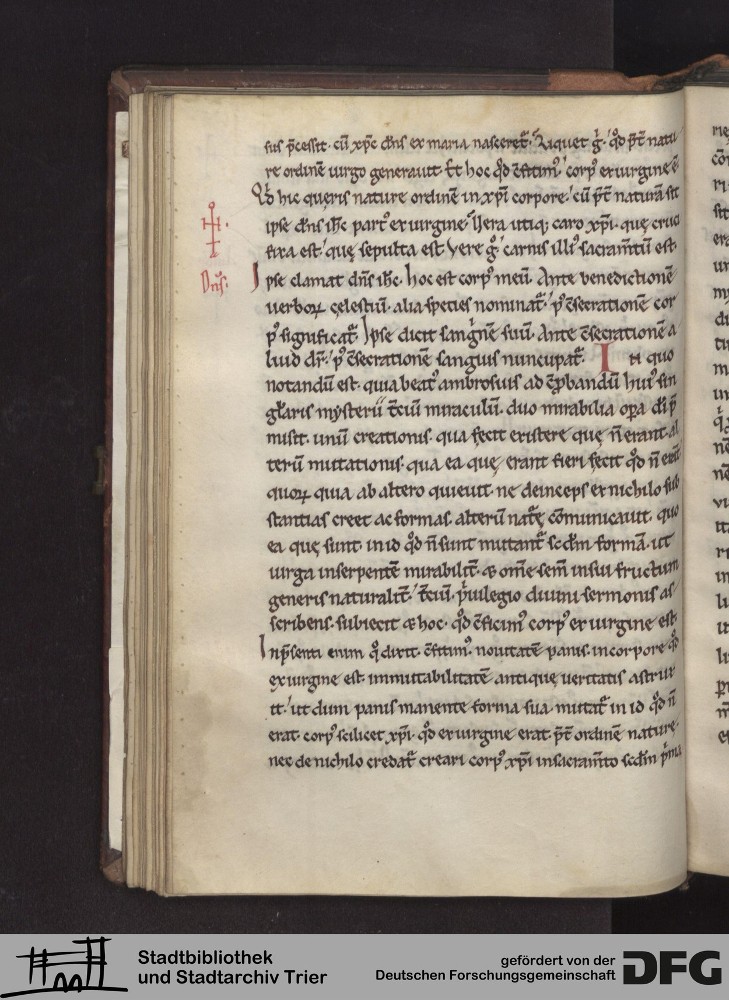 sus p̄cessit· cū xp̄c dn̄s ex maria nasceret᷑· Liquet ǵ· qđ p̄t̄ natu
re ordinē uirgo generauit· Et hoc qđ ꝯficim᷒· corp᷒ ex uirgine ē·
Qđ hic queris nature ordinē in xp̄i corpore· cū p̄t̄ naturā sit
ipse dn̄s ih̄c part᷒ ex uirgine· Uera utiq; caro xp̄i· quę cruci
fixa est· quę sepulta est· Vere ǵ carnis illi᷒ sacram̄tū est·
Ipse clamat dn̄s ih̄c· hoc est corp᷒ meū· Ante benedictionē
uerboꝝ cęlestiū· alia species nominat᷑· p᷒ ꝯsecrationē cor
p᷒ significat᷑· Ipse dicit sanḡnē suū· Ante ꝯsecrationē a
liud dr̄· p᷒ ꝯsecrationē sanguis nuncupat᷑· In quo
notandū est· quia beat᷒ ambrosius ad ꝯp̄bandū hui᷒ sin
gl̄aris mysterii t̄ciū miraculū· duo mirabilia oꝑa di p̄
misit· unū creationis· qua fecit existere quę n̄ erant· al
terū mutationis· qua ea quę erant fieri fecit qđ n̄ erāt
quoꝝ quia ab altero quieuit· ne deinceps ex nichilo sub
stantias creet ac formas· alterū nat᷑ę cōmunicauit· quo
ea quę sunt· in id qđ n̄ sunt mutant᷑ scđm formā· ut
uirga in serpentē mirabilit̄· & om̄e sem̄ in sui fructum
generis naturalit̄· t̄ciū· p̄uilegio diuini sermonis as
scribens· subiecit & hoc· qđ ꝯficim᷒ corp᷒ ex uirgine est·
In p̄senti enim qđ dixit· ꝯficim᷒· nouitatē panis· in corpore qđ
ex uirgine est immutabilitatē antiquę ueritatis astrux
it· ut dum panis manente forma sua mutat᷑ in id qđ n̄
erat· corp᷒ scilicet xp̄i· qđ ex uirgine erat p̄t̄ ordinē nature·
nec de nichilo credat᷑ creari corp᷒ xp̄i in sacram̄to scđm p̄ma
Dn̄s·
Stadtbibliothek
und Stadtarchiv Trier
gefördert von der
Deutschen Forschungsgemeinschaft
DFG